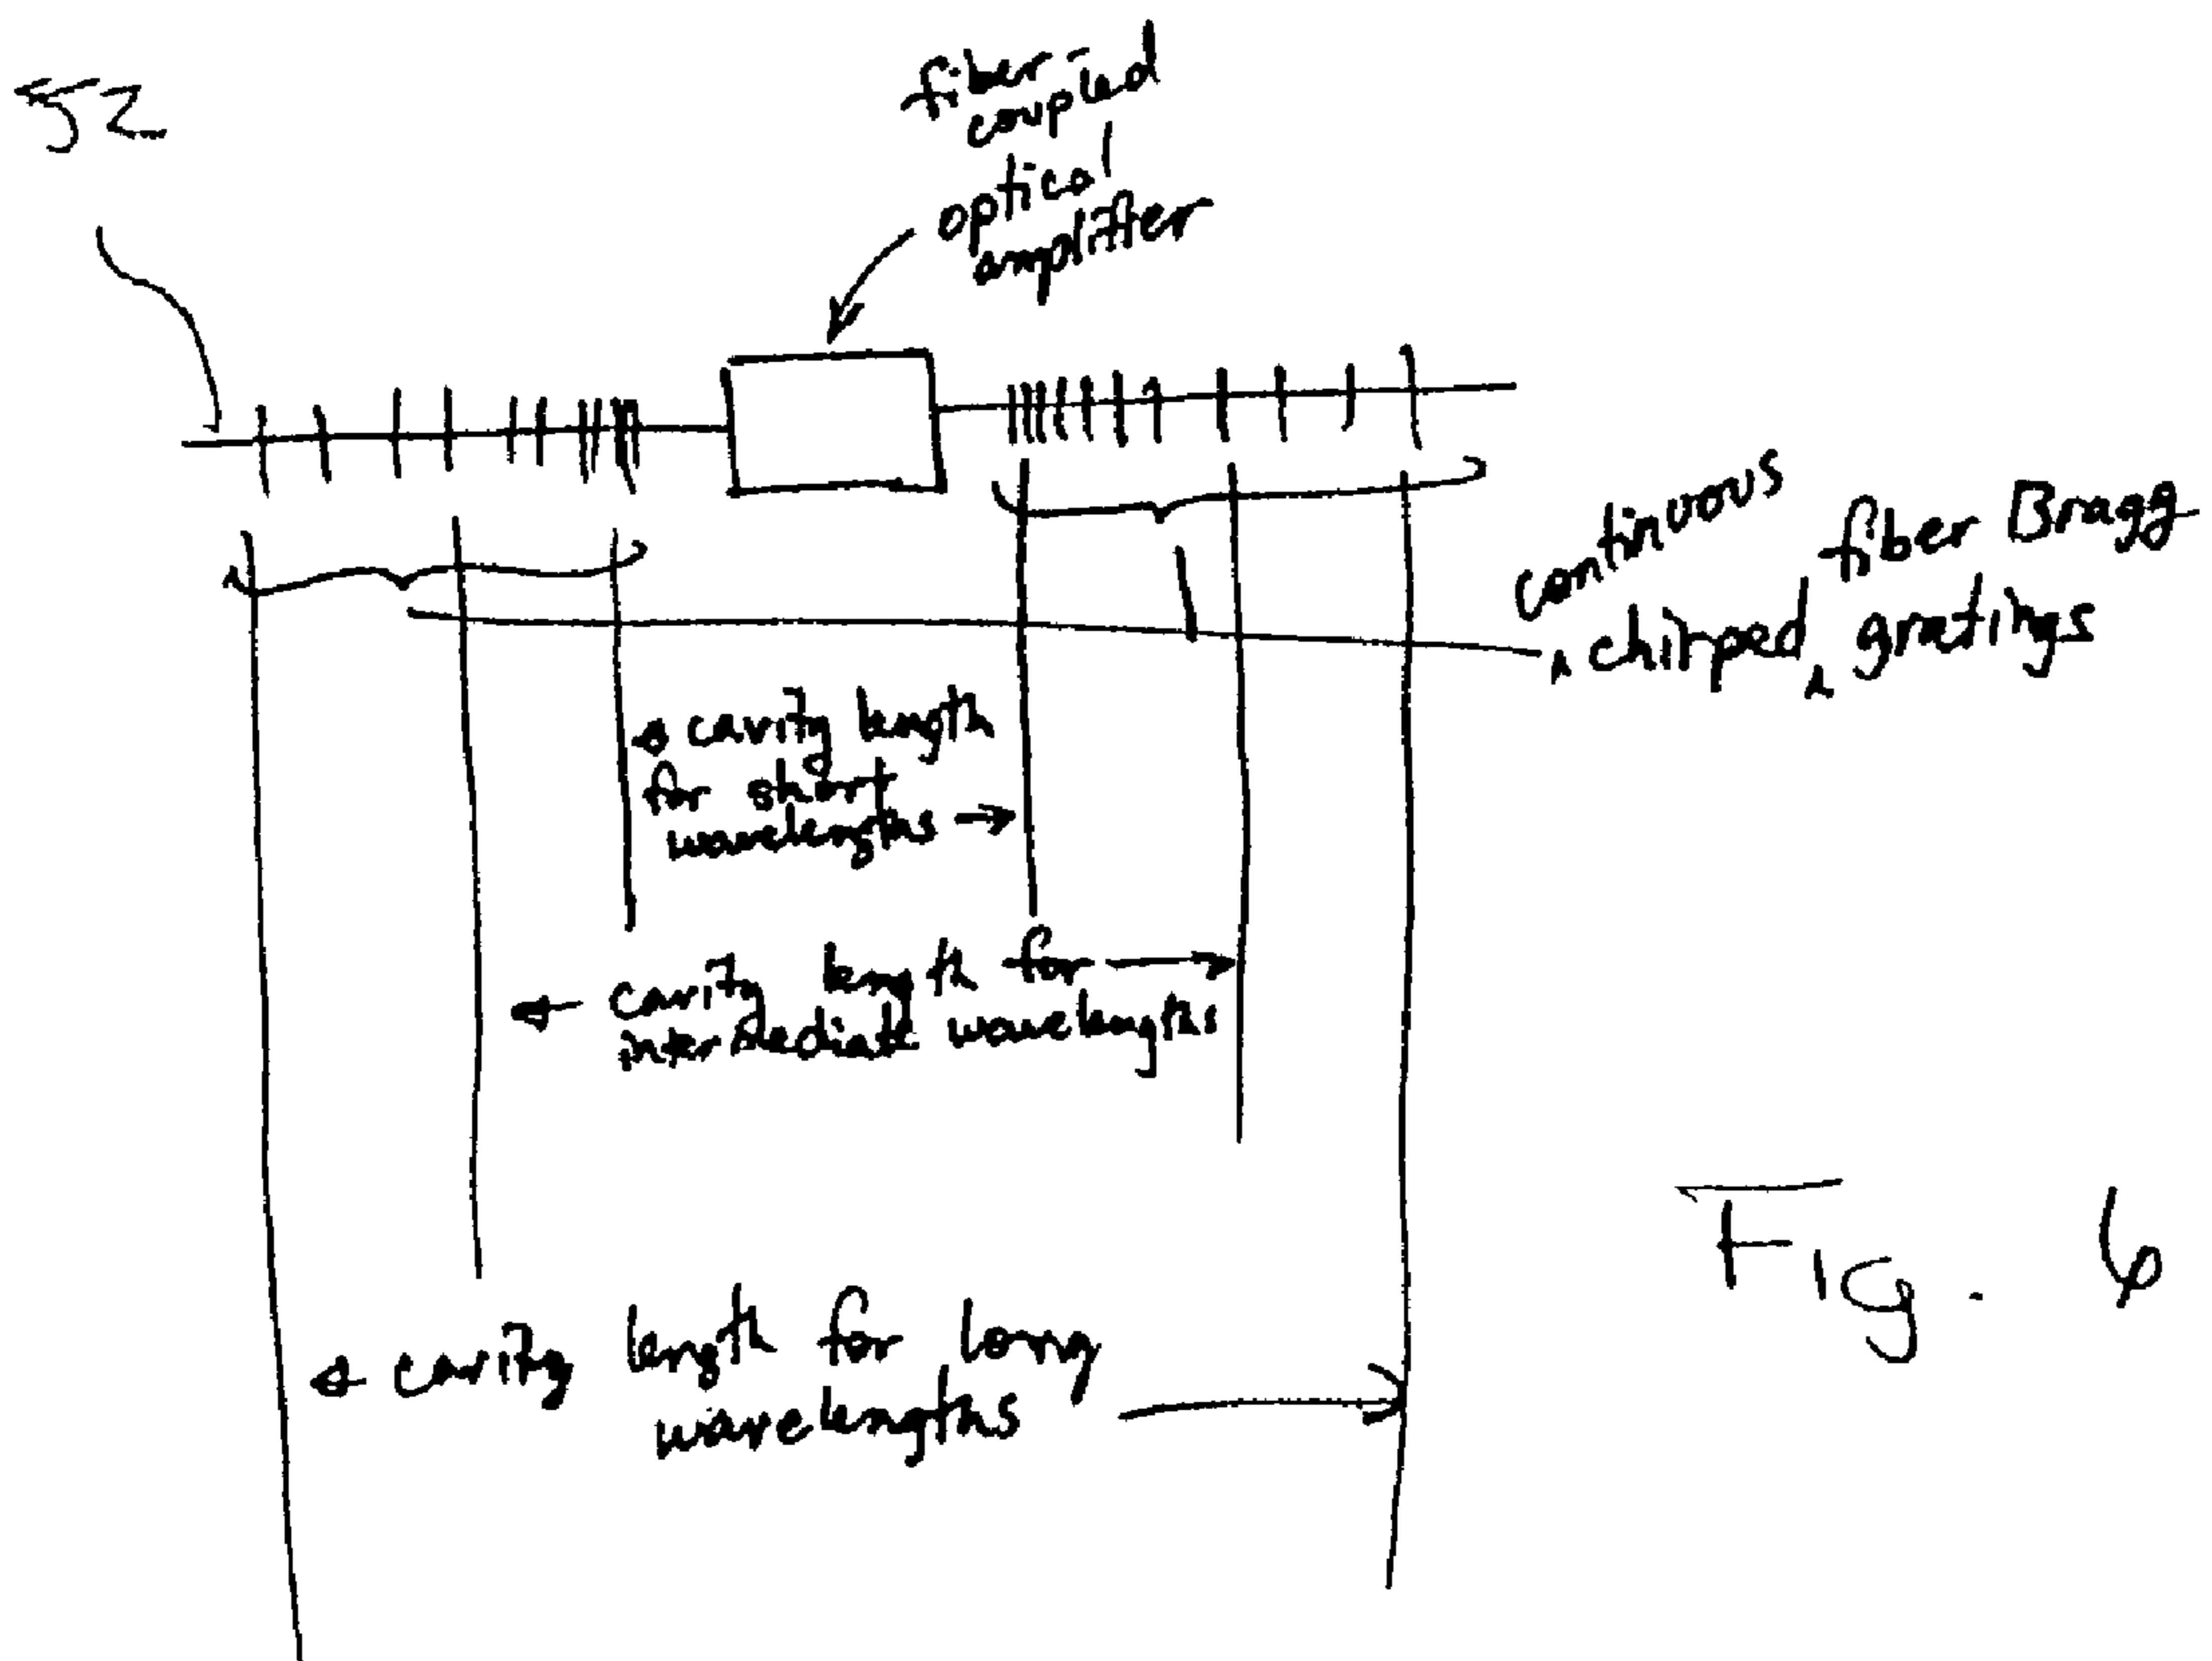 52
fiber
coupled
optical
amplifier
continuous
fiber Bragg
chirped gratings
cavity length
for short
wavelengths
cavity length for
intermediate wavelengths
cavity length for long
wavelengths
Fig. 6